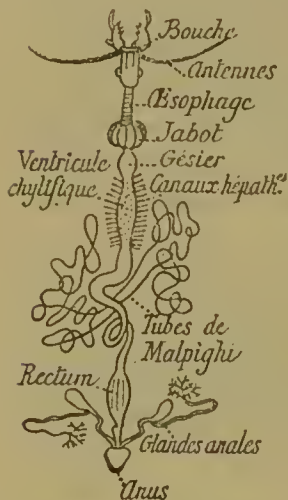 Bouche
Antennes
Œsophage
Jabot
Ventricule
chylifique
Gésier
Canaux hépath.es
Tubes de
Malpighi
Rectum
Glandes anales
Anus